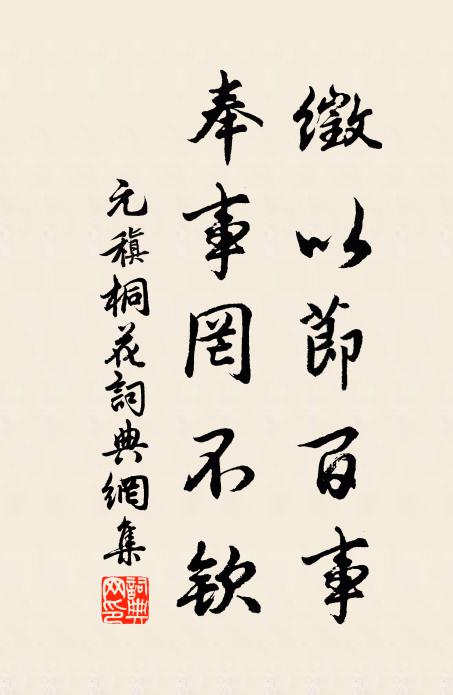 徵以節百事
奉事罔不欽
元稹桐花詞典網集
詞典網印